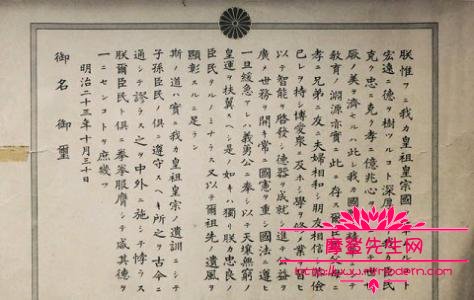 朕惟フニ我カ皇祖皇宗國
宏遠ニ德ヲ樹ツルコト深厚 我カ臣民
克ク忠ニ克ク孝ニ億兆心ヲ 世
厥ノ美ヲ濟セルハ此レ我カ國
教育ノ淵源亦實ニ此ニ存ス爾臣 父母ニ
孝ニ兄弟ニ友ニ夫婦相和シ朋友相信シ恭儉
己レヲ持シ博愛衆ニ及ホシ學ヲ修メ業ヲ習ヒ
以テ智能ヲ啓發シ德器ヲ成就シ進テ公益ヲ
廣メ世務ヲ開キ常ニ國憲ヲ重シ國法ニ遵ヒ
一旦緩急アレハ義勇公ニ奉シ以テ天壤無窮ノ
皇運ヲ扶翼スヘシ是ノ如キハ獨リ朕カ忠良ノ
臣民タルノミナラス又以テ爾祖先ノ遺風ヲ
顯彰スルニ足ラン
斯ノ道ハ實ニ我カ皇祖皇宗ノ遺訓ニシテ
子孫臣民ノ俱ニ遵守スヘキ所之ヲ古今ニ
通シテ謬ラス之ヲ中外ニ施シテ悖ラス
朕爾臣民ト俱ニ拳拳服膺シテ咸其德ヲ
一ニセンコトヲ庶幾フ
明治二十三年十月三十日
御名御璽
摩登先生网
http://www.mrmodern.com